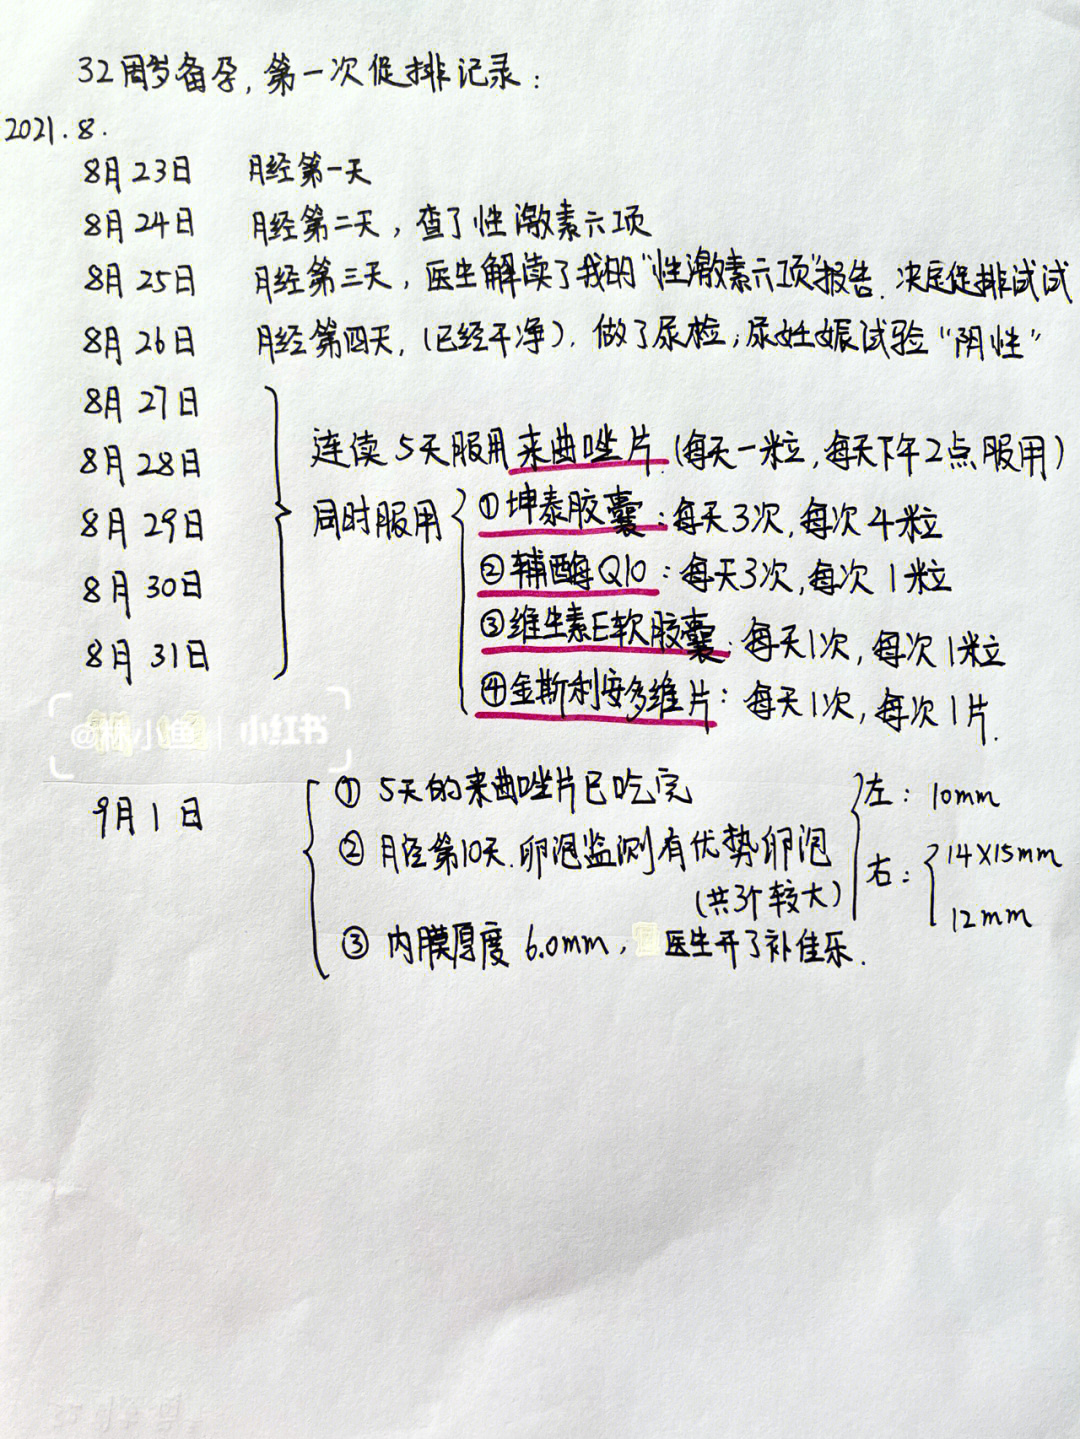 32周岁备孕,第一次促排记录:
2021.8.
8月23日 月经第一天
8月24日 月经第二天,查了性激素六项
8月25日 月经第三天,医生解读了我的"性激素六项"报告.决定促排试试
8月26日 月经第四天,(已经干净).做了尿检;尿妊娠试验"阴性"
8月27日
8月28日 连续5天服用来曲唑片.(每天一粒,每天下午2点服用)
8月29日 同时服用 ①坤泰胶囊:每天3次,每次4粒
8月30日 ②辅酶Q10:每天3次,每次1粒
8月31日 ③维生素E软胶囊:每天1次,每次1粒
④金斯利安多维片:每天1次,每次1片.
小红书
9月1日 ①5天的来曲唑片已吃完
②月经第10天.卵泡监测有优势卵泡
(共3个较大)
左:10mm
右:14X15mm
12mm
③内膜厚度6.0mm,医生开了补佳乐.